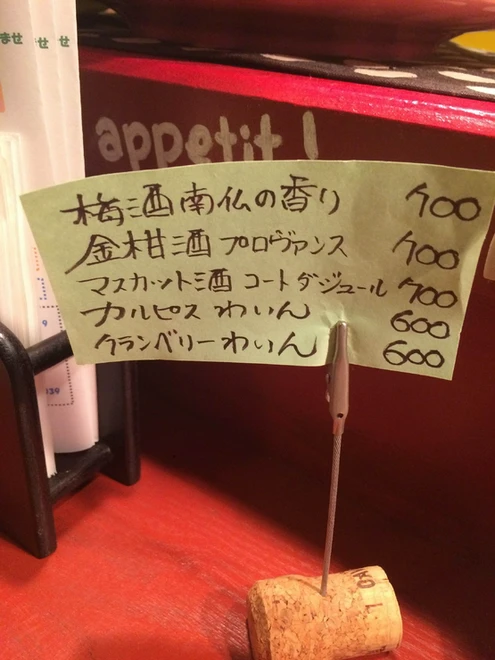 ませ
せ
せ
appetit!
梅酒南仏の香り 700
金柑酒 プロヴァンス 700
マスカット酒 コートダジュール 700
カルピス わいん 600
クランベリーわいん 600
9
039